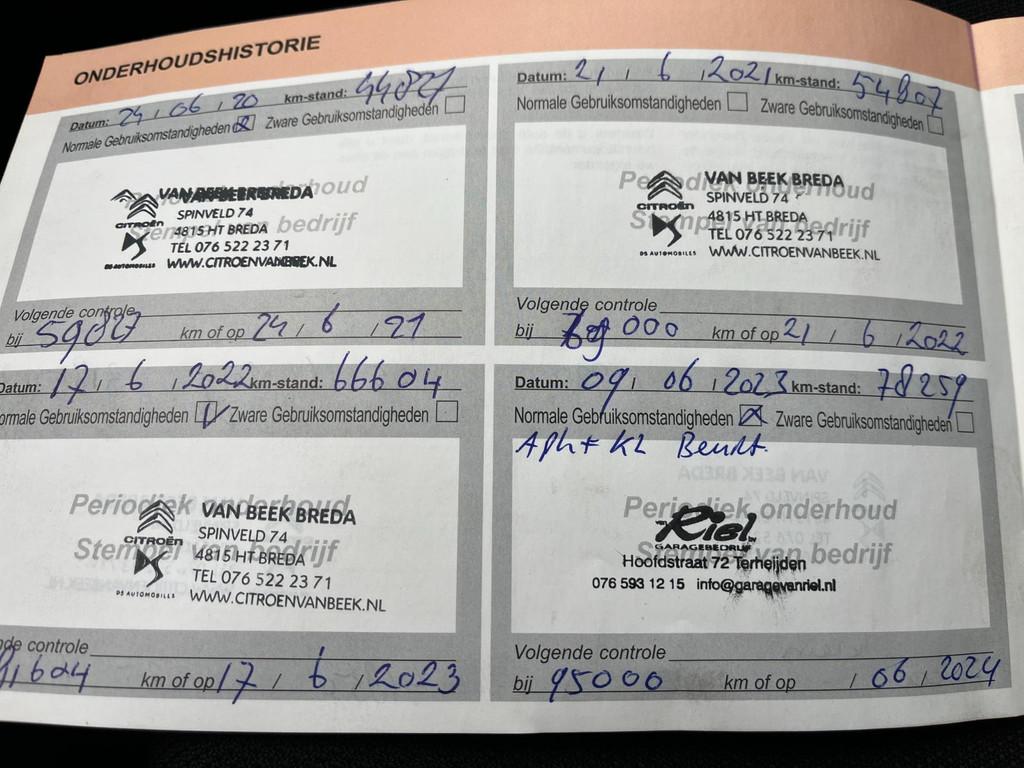 ONDERHOUDSHISTORIE
Datum: 24 / 06 / 20 km-stand: 44087
Normale Gebruiksomstandigheden Zware Gebruiksomstandigheden
Periodiek onderhoud
Stempel van bedrijf
VAN BEEK BREDA
CITROËN SPINVELD 74
4815 HT BREDA
TEL 076 522 23 71
DS AUTOMOBILES WWW.CITROENVANBEEK.NL
Volgende controle
bij 59087 km of op 24 / 6 / 21
Datum: 21 / 6 / 2021 km-stand: 54807
Normale Gebruiksomstandigheden Zware Gebruiksomstandigheden
Periodiek onderhoud
Stempel van bedrijf
VAN BEEK BREDA
CITROËN SPINVELD 74
4815 HT BREDA
TEL 076 522 23 71
DS AUTOMOBILES WWW.CITROENVANBEEK.NL
Volgende controle
bij 000 km of op 21 / 6 / 2022
Datum: 17 / 6 / 2022 km-stand: 66604
ormale Gebruiksomstandigheden Zware Gebruiksomstandigheden
Periodiek onderhoud
Stempel van bedrijf
VAN BEEK BREDA
CITROËN SPINVELD 74
4815 HT BREDA
TEL 076 522 23 71
DS AUTOMOBILES WWW.CITROENVANBEEK.NL
nde controle
1604 km of op 17 / 6 / 2023
Datum: 09 / 06 / 2023 km-stand: 78259
Normale Gebruiksomstandigheden Zware Gebruiksomstandigheden
Periodiek onderhoud
Stempel van bedrijf
Riel
GARAGEBEDRIJF
Hoofdstraat 72 Terheijden
076 593 12 15 info@garagevanriel.nl
Volgende controle
bij 95000 km of op / 06 / 2024